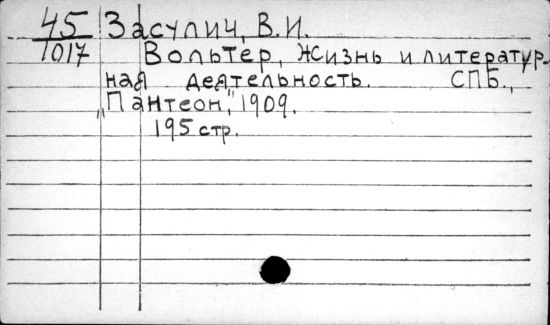 45 Засулич, В.И.
1017 Вольтер, жизнь и литератур-
ная деятельность. СПБ.,
„Пантеон", 1909.
195 стр.